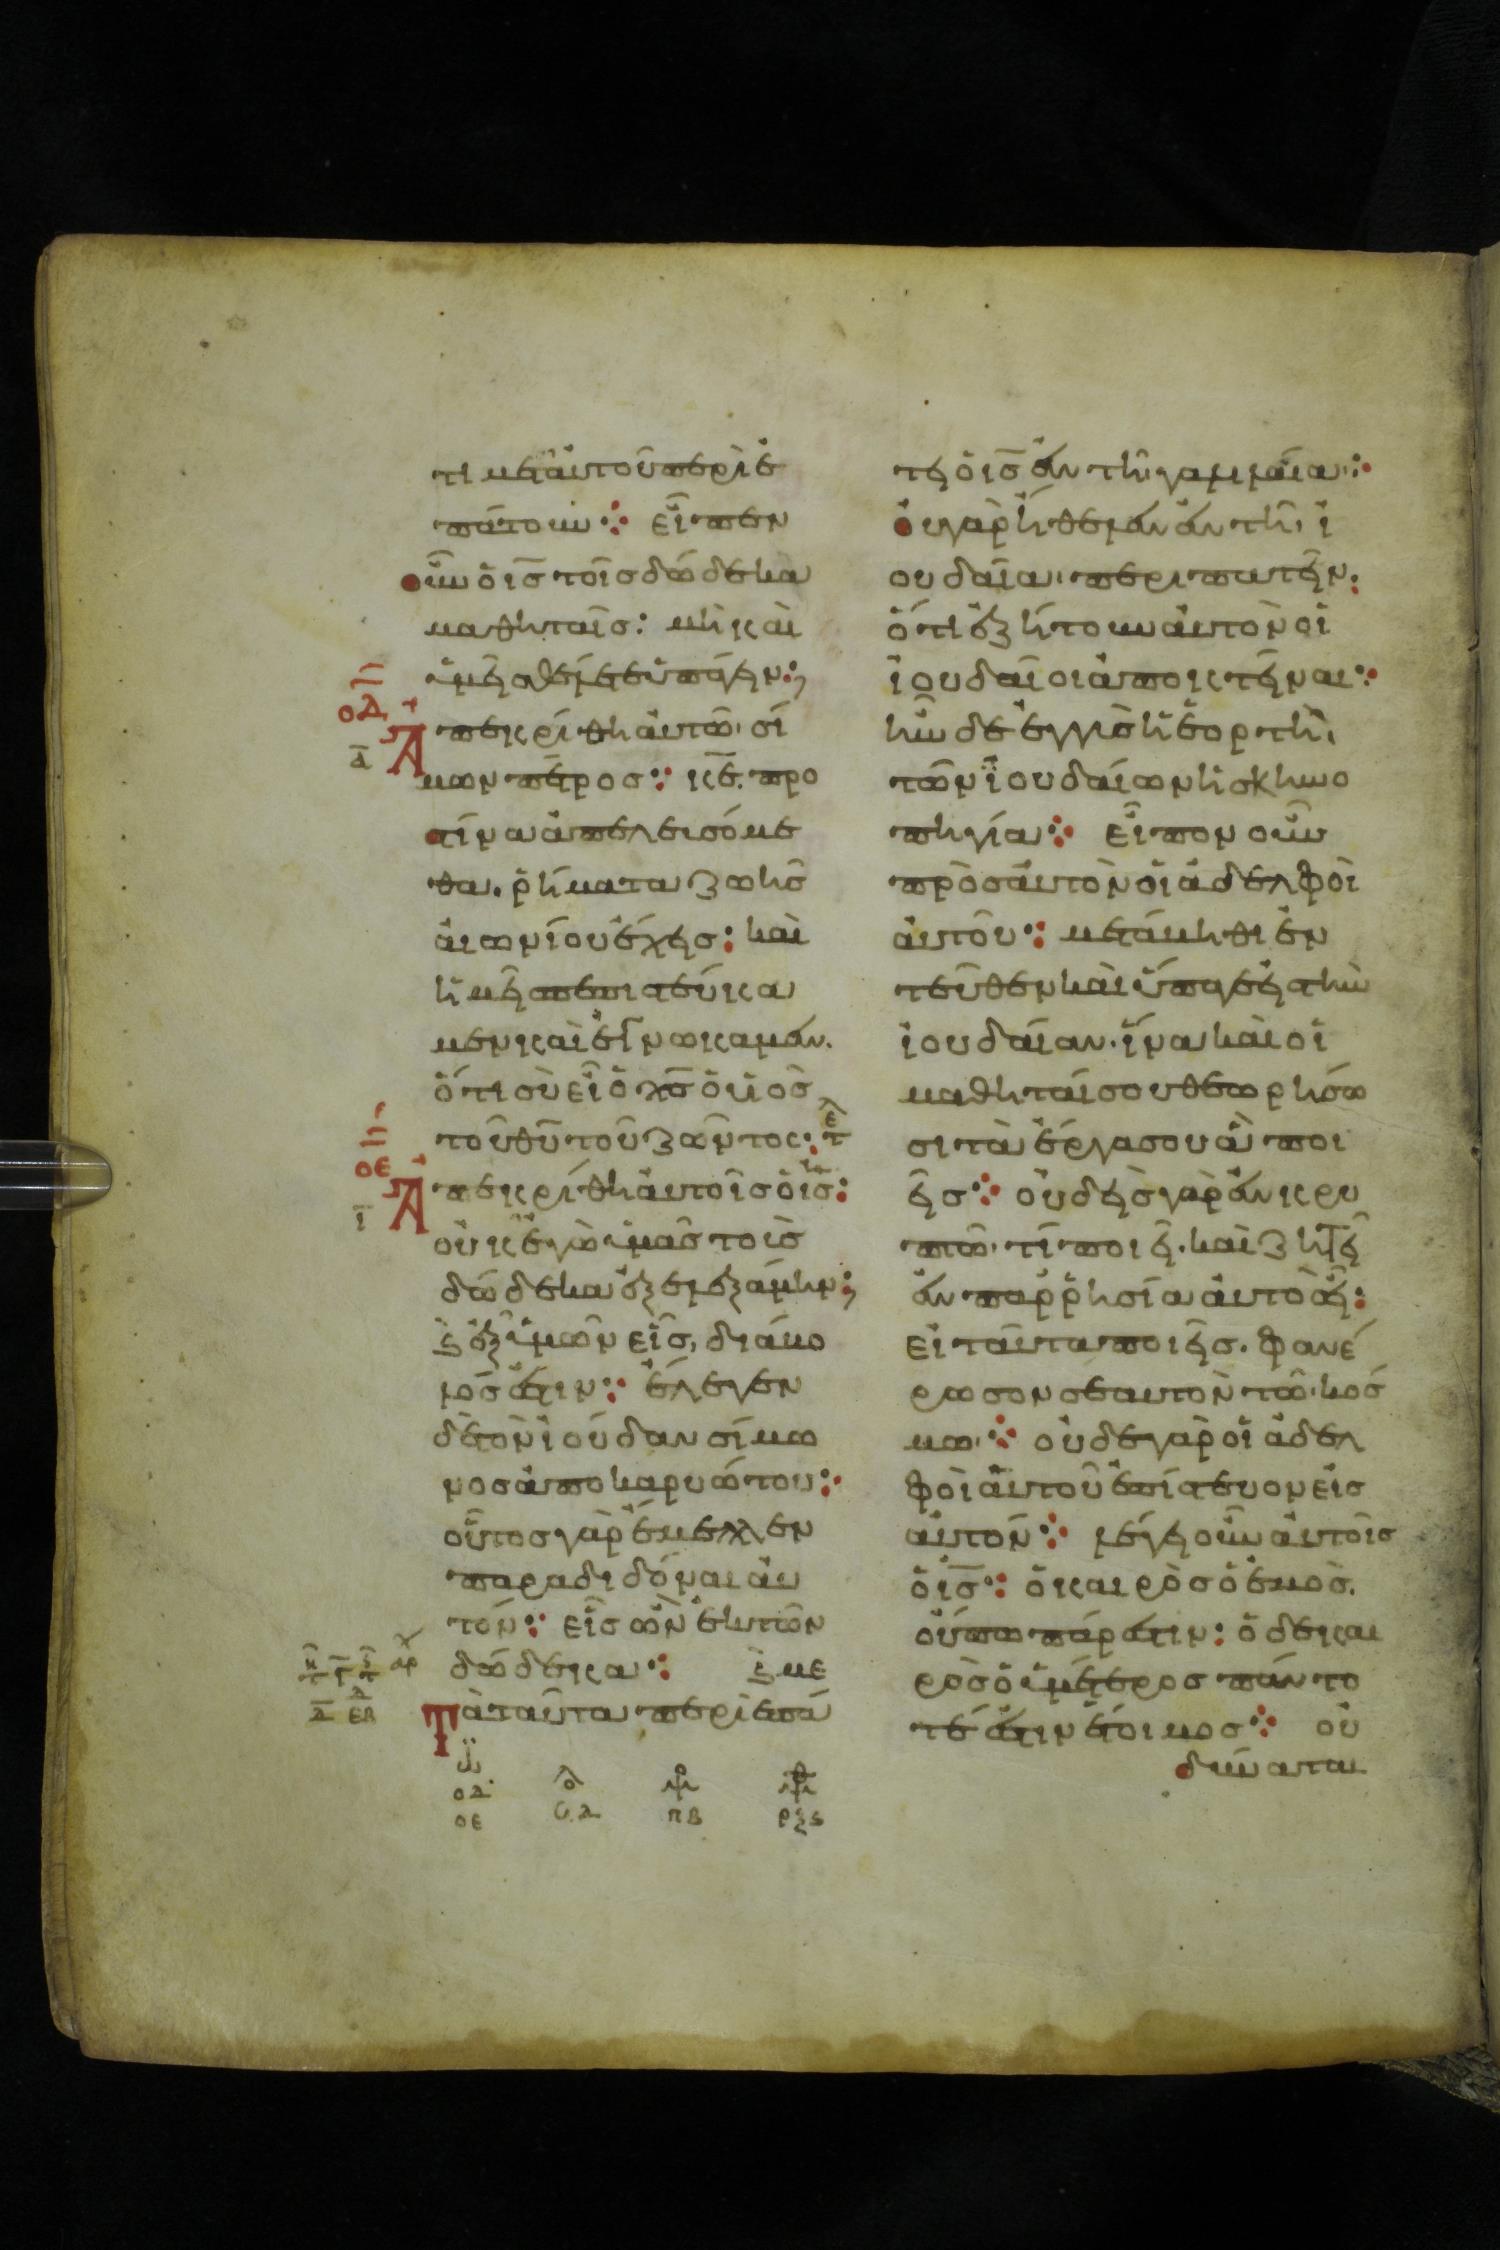 τι μετ αὐτοῦ περιε
πάτουν· εἶπεν
οὖν ὁ ις τοῖς δώδεκα
μαθηταῖς: μὴ καὶ
ὑμεῖς θέλετε ὑπάγειν;
οδ
Ἀπεκρίθη αὐτῶ σί
μων πέτρος: κε προ
τίνα ἀπελευσόμε
θα. ῥήματα ζωῆς
αἰωνίου ἔχεις: καὶ
ἡμεῖς πεπιστεύκα
μεν καὶ ἐγνώκαμεν.
ὅτι σὺ εἶ ὁ χς ὁ υἱὸς
τοῦ θυ τοῦ ζῶντος:
οε
Ἀπεκρίθη αὐτοῖς ὁ ις:
οὐκ ἐγὼ ὑμᾶς τοὺς
δώδεκα ἐξελεξάμην;
ϗ ἐξ ὑμῶν εἷς, διάβο
λός ἐστιν: ἔλεγεν
δὲ τὸν ἰούδαν σίμω
νος ἀπὸ καρυώτου:
οὗτος γὰρ ἔμελλεν
παραδιδόναι αὐ
τόν: εἷς ὢν ἐκ τῶν
δώδεκα: ϗ με
Τὰ ταῦτα περιεπά
οδ
οε
πβ
ρξς
τει ὁ ις ἐν τῆ γαλιλαία:
οὐ γὰρ ἤθελεν ἐν τῆ ἰ
ουδαία περιπατεῖν.
ὅτι ἐζήτουν αὐτὸν οἱ
ἰουδαῖοι ἀποκτεῖναι:
ἦν δὲ ἐγγὺς ἡ ἑορτὴ
τῶν ἰουδαίων ἡ σκηνο
πηγία: εἶπον οὖν
πρὸς αὐτὸν οἱ ἀδελφοὶ
αὐτοῦ: μετάβηθι ἐν
τεῦθεν καὶ ὕπαγε εἰς τὴν
ἰουδαίαν. ἵνα καὶ οἱ
μαθηταί σου θεωρήσω
σι τὰ ἔργα σου ἃ ποι
εῖς: οὐδεὶς γὰρ ἐν κρυ
πτῶ τὶ ποιεῖ. καὶ ζητεῖ
ἐν παρρησία αὐτὸς εἶ:
εἰ ταῦτα ποιεῖς. φανέ
ρωσον σεαυτὸν τῶ κόσ
μω: οὐδὲ γὰρ οἱ ἀδελ
φοὶ αὐτοῦ ἐπίστευον εἰς
αὐτόν: λέγει οὖν αὐτοῖς
ὁ ις: ὁ καιρὸς ὁ ἐμὸς.
οὔπω πάρεστιν: ὁ δὲ και
ρὸς ὁ ὑμέτερος πάντο
τέ ἐστιν ἕτοιμος: οὐ
δύναται